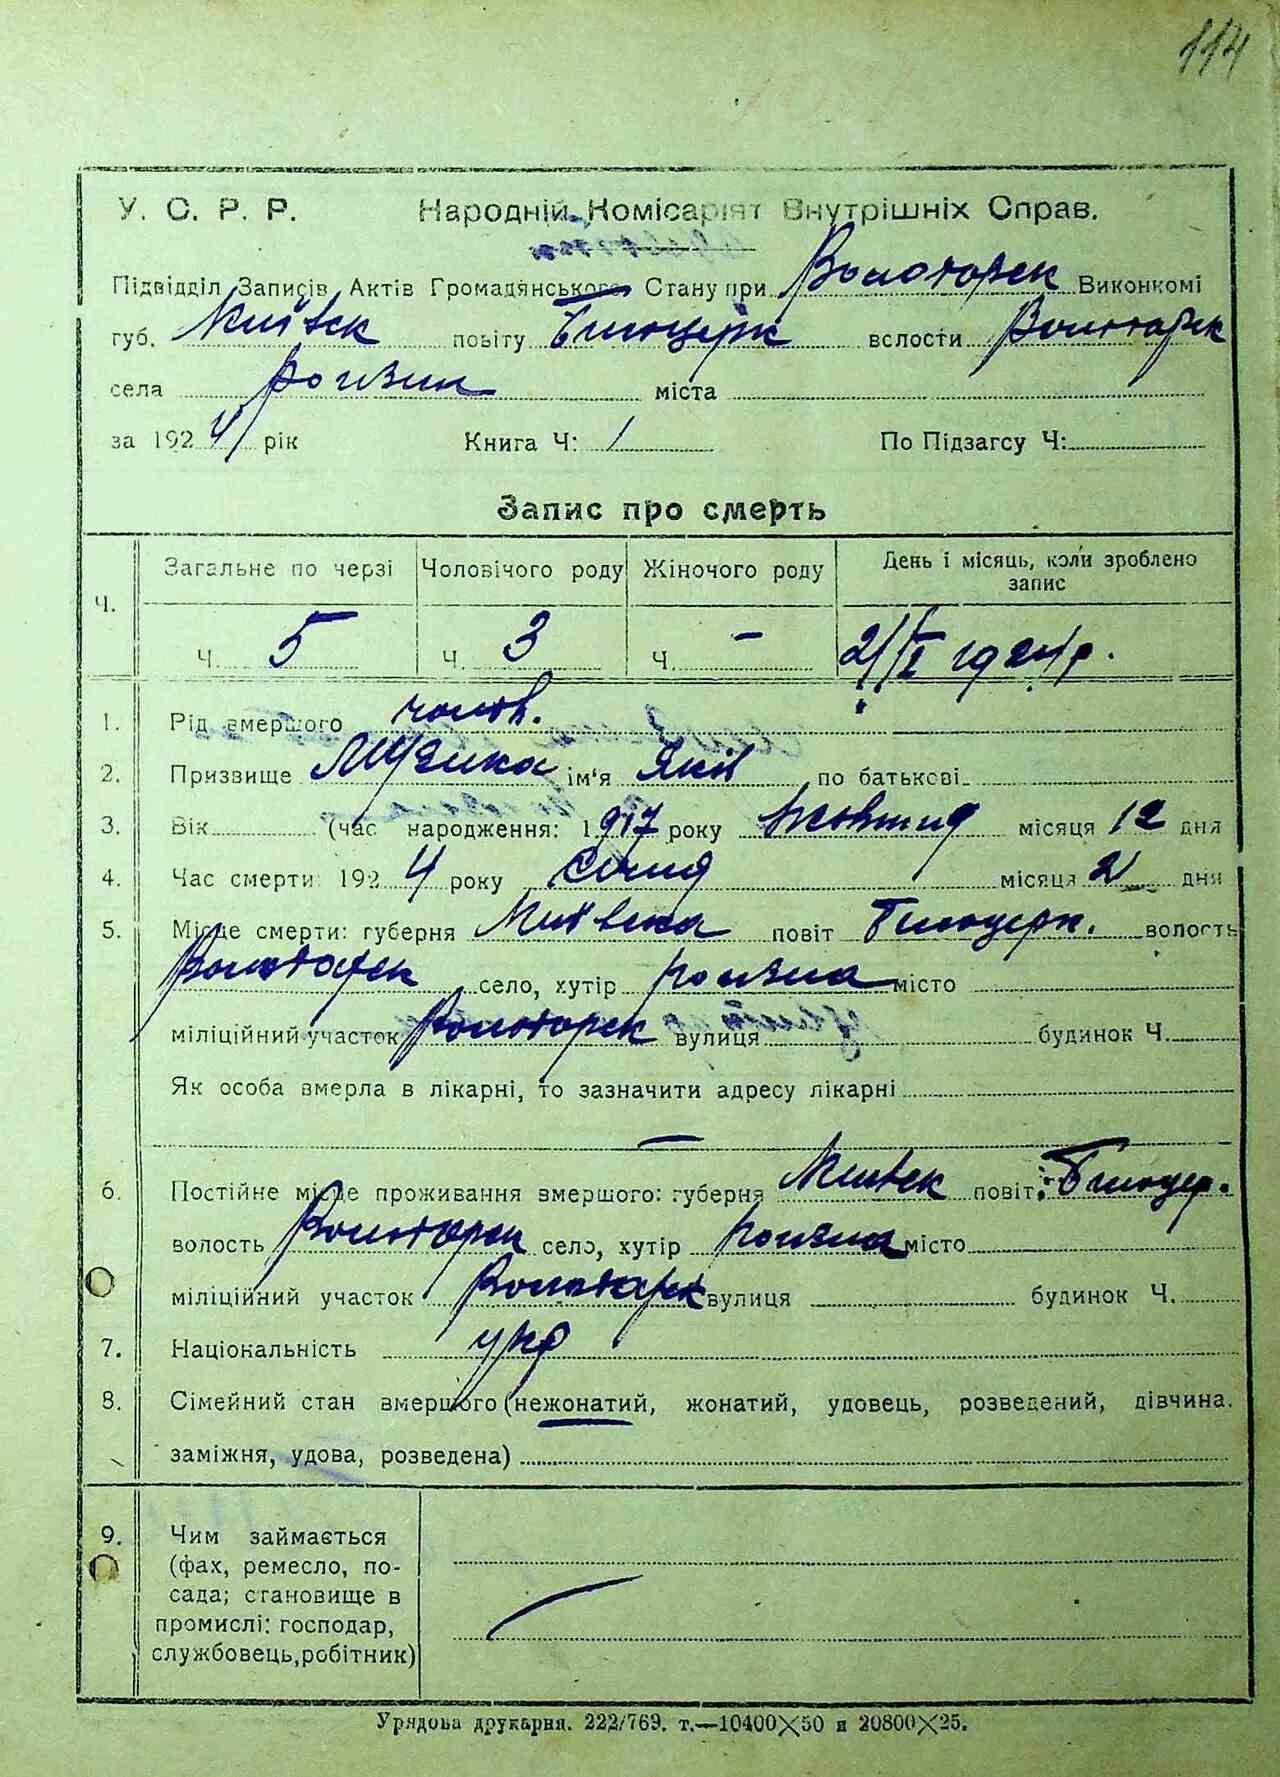 114
У. С. Р. Р. Народній Комісаріят Внутрішніх Справ.
Підвідділ Записів Актів Громадянського Стану при Володарск Виконкомі
губ. Київск повіту Білоцерк вслости Володарск
села Рогизни міста
за 1924 рік Книга Ч: 1 По Підзагсу Ч:
Запис про смерть
Ч. Загальне по черзі Чоловічого роду Жіночого роду День і місяць, коли зроблено запис
Ч. 5 Ч. 3 Ч. – 2/II 1924 р.
1. Рід вмершого чолов.
2. Призвище Музика ім'я Яків по батькові
3. Вік (час народження: 1917 року Жовтня місяця 12 дня
4. Час смерти 1924 року Січня місяця 21 дня
5. Місце смерти: губерня Київска повіт Білоцерк. волость
Володарск село, хутір Рогизна місто
міліційний участок Володарск вулиця будинок Ч.
Як особа вмерла в лікарні, то зазначити адресу лікарні
–
6. Постійне місце проживання вмершого: губерня Київск повіт Білоцер.
волость Володарск село, хутір Рогизна місто
міліційний участок Володарск вулиця будинок Ч.
7. Національність укр
8. Сімейний стан вмершого (нежонатий, жонатий, удовець, розведений, дівчина.
заміжня, удова, розведена)
9. Чим займається
(фах, ремесло, по-
сада; становище в
промислі: господар,
службовець, робітник)
Урядова друкарня. 222/769. т.—10400×50 и 20800×25.